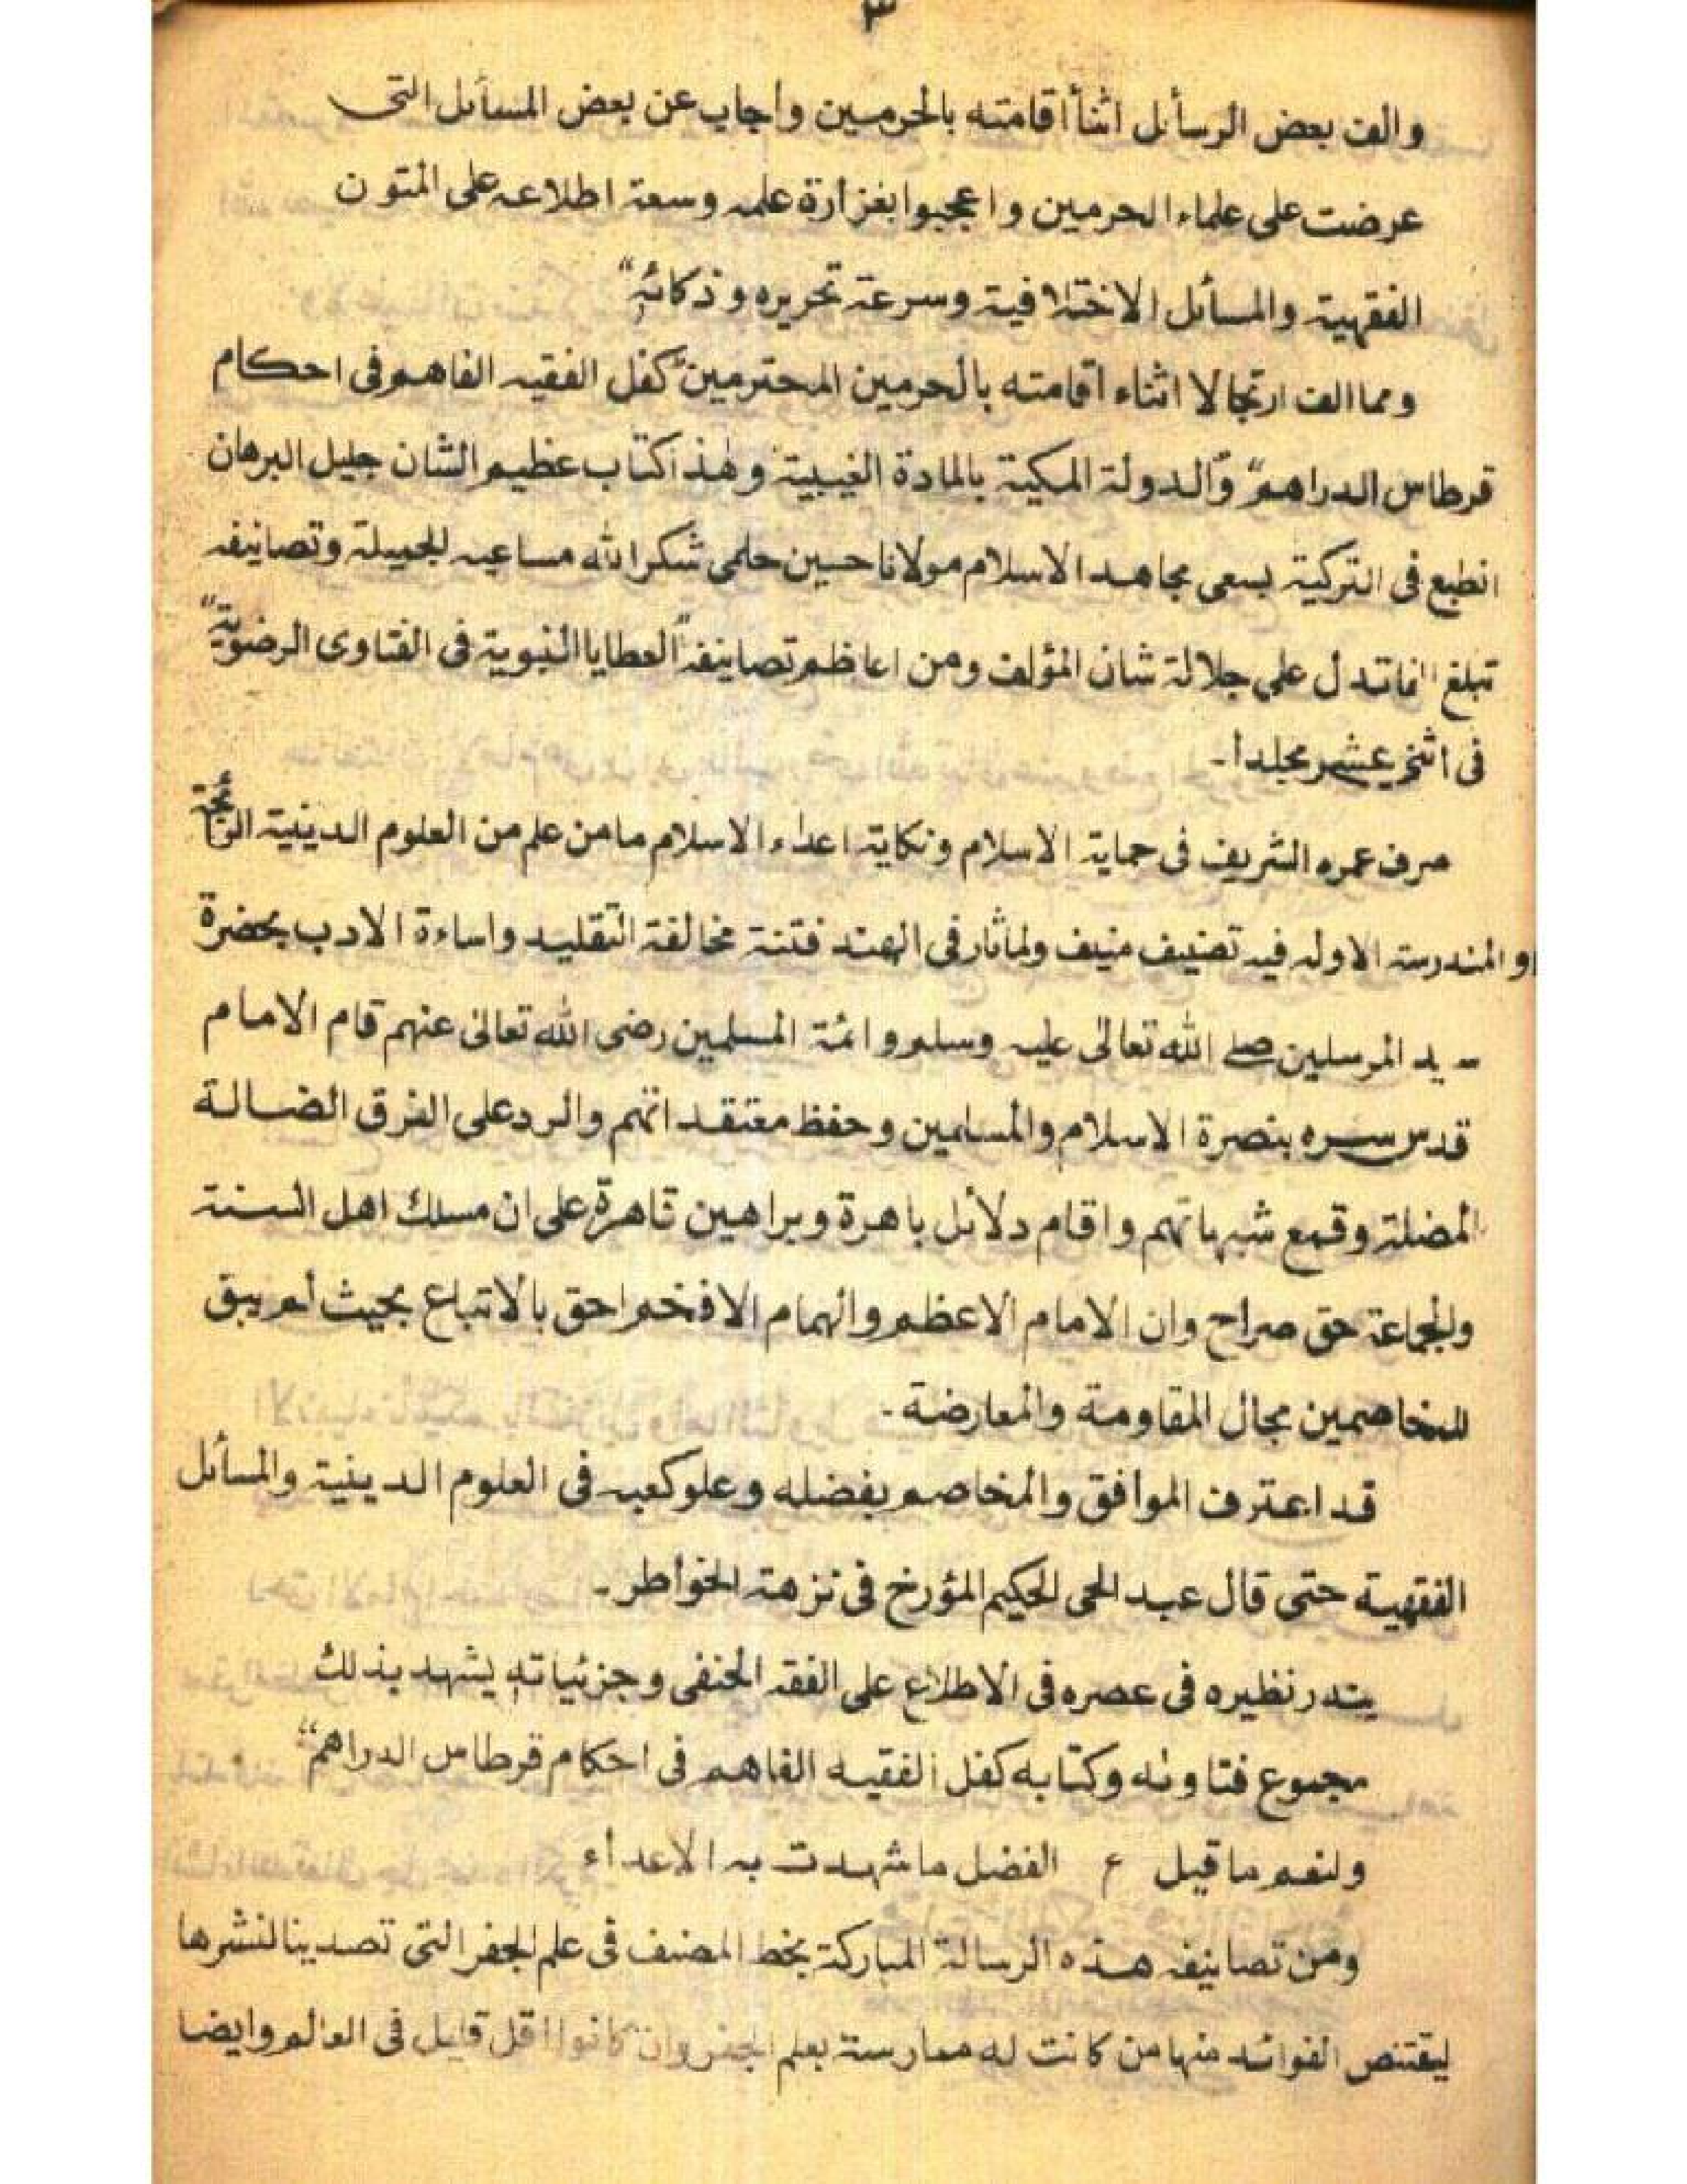 ٣
والف بعض الرسائل اثنأ اقامته بالحرمين واجاب عن بعض المسائل التى
عرضت على علماء الحرمين واعجبوا بغزارة علمه وسعة اطلاعه على المتون
الفقهية والمسائل الاختلافية وسرعة تحريره وذكائه“
ومما الف ارتجالا اثناء اقامته بالحرمين المحترمين ”كفل الفقيه الفاهم فى احكام
قرطاس الدراهم“ و”الدولة المكية بالمادة الغيبية وهٰذا كتاب عظيم الشان جليل البرهان
انطبع فى التركية بسعى مجاهد الاسلام مولانا حسين حلمى شكر الله مساعيه الجميلة وتصانيفه
تبلغ الفا تدل على جلالة شان المؤلف ومن اعاظم تصانيفه ”العطايا النبوية فى الفتاوى الرضوية“
فى اثنى عشر مجلدا۔
صرف عمره الشريف فى حماية الاسلام ونكاية اعداء الاسلام مامن علم من العلوم الدينية الرائجة
او المندرسة الاوله فيه تصنيف منيف ولماثار فى الهند فتنة مخالفة التقليد واساءة الادب بحضرة
سيد المرسلين صلے الله تعالىٰ عليه وسلم وائمة المسلمين رضى الله تعالىٰ عنهم قام الامام
قدس سره بنصرة الاسلام والمسلمين وحفظ معتقداتهم والرد على الفرق الضالة
المضلة وقمع شبهاتهم واقام دلائل باهرة وبراهين قاهرة على ان مسلك اهل السنة
والجماعة حق صراح وان الامام الاعظم والهمام الافخم احق بالاتباع بحيث لم يبق
للمخاصمين مجال المقاومة والمعارضة۔
قد اعترف الموافق والمخاصم بفضله وعلو كعبه فى العلوم الدينية والمسائل
الفقهية حتى قال عبد الحى الحكيم المؤرخ فى نزهة الخواطر۔
يندر نظيره فى عصره فى الاطلاع على الفقه الحنفى وجزئياته يشهد بذلك
مجموع فتاوٰه وكتابه كفل الفقيه الفاهم فى احكام قرطاس الدراهم“
ولنعم ما قيل ع الفضل ما شهدت به الاعداء
ومن تصانيفه هذه الرسالة المباركة بخط المصنف فى علم الجفر التى تصدينا لنشرها
ليقتنص الفوائد منها من كانت له ممارسة بعلم الجفر وان كانوا اقل قليل فى العالم وايضا